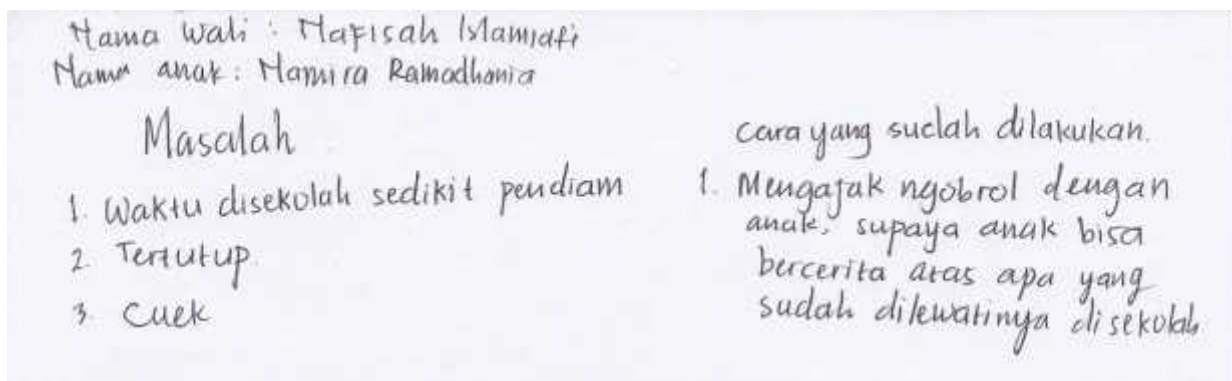 Nama wali : Nafisah Islamiati
Nama anak : Namira Ramadhania
Masalah
1. Waktu disekolah sedikit pendiam
2. Tertutup.
3. Cuek
cara yang sudah dilakukan.
1. Mengajak ngobrol dengan
anak, supaya anak bisa
bercerita atas apa yang
sudah dilewatinya disekolah